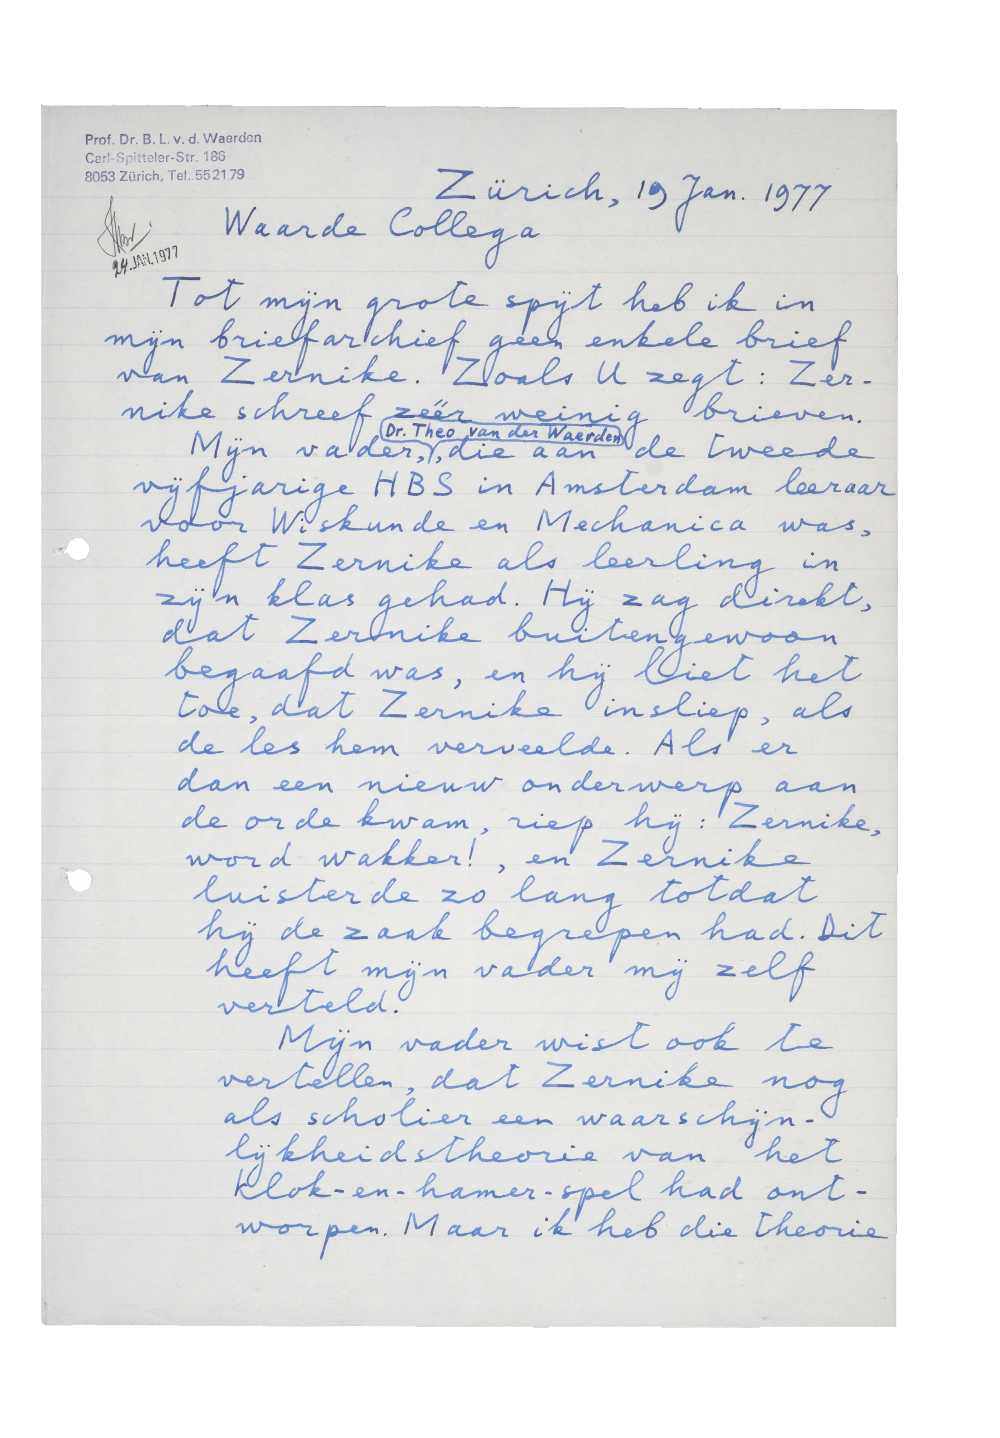 Prof. Dr. B. L. v. d. Waerden
Carl-Spitteler-Str. 186
8053 Zürich, Tel. 55 21 79
Zürich, 19 Jan. 1977
Waarde Collega
24. JAN. 1977
Tot mijn grote spijt heb ik in
mijn briefarchief geen enkele brief
van Zernike. Zoals U zegt: Zer-
nike schreef zeër weinig brieven.
Dr. Theo van der Waerden
Mijn vader, , die aan de tweede
vijfjarige HBS in Amsterdam leeraar
voor Wiskunde en Mechanica was,
heeft Zernike als leerling in
zijn klas gehad. Hij zag direkt,
dat Zernike buitengewoon
begaafd was, en hij liet het
toe, dat Zernike insliep, als
de les hem verveelde. Als er
dan een nieuw onderwerp aan
de orde kwam, riep hij: Zernike,
word wakker!, en Zernike
luisterde zo lang totdat
hij de zaak begrepen had. Dit
heeft mijn vader mij zelf
verteld.
Mijn vader wist ook te
vertellen, dat Zernike nog
als scholier een waarschijn-
lijkheidstheorie van het
klok-en-hamer-spel had ont-
worpen. Maar ik heb die theorie